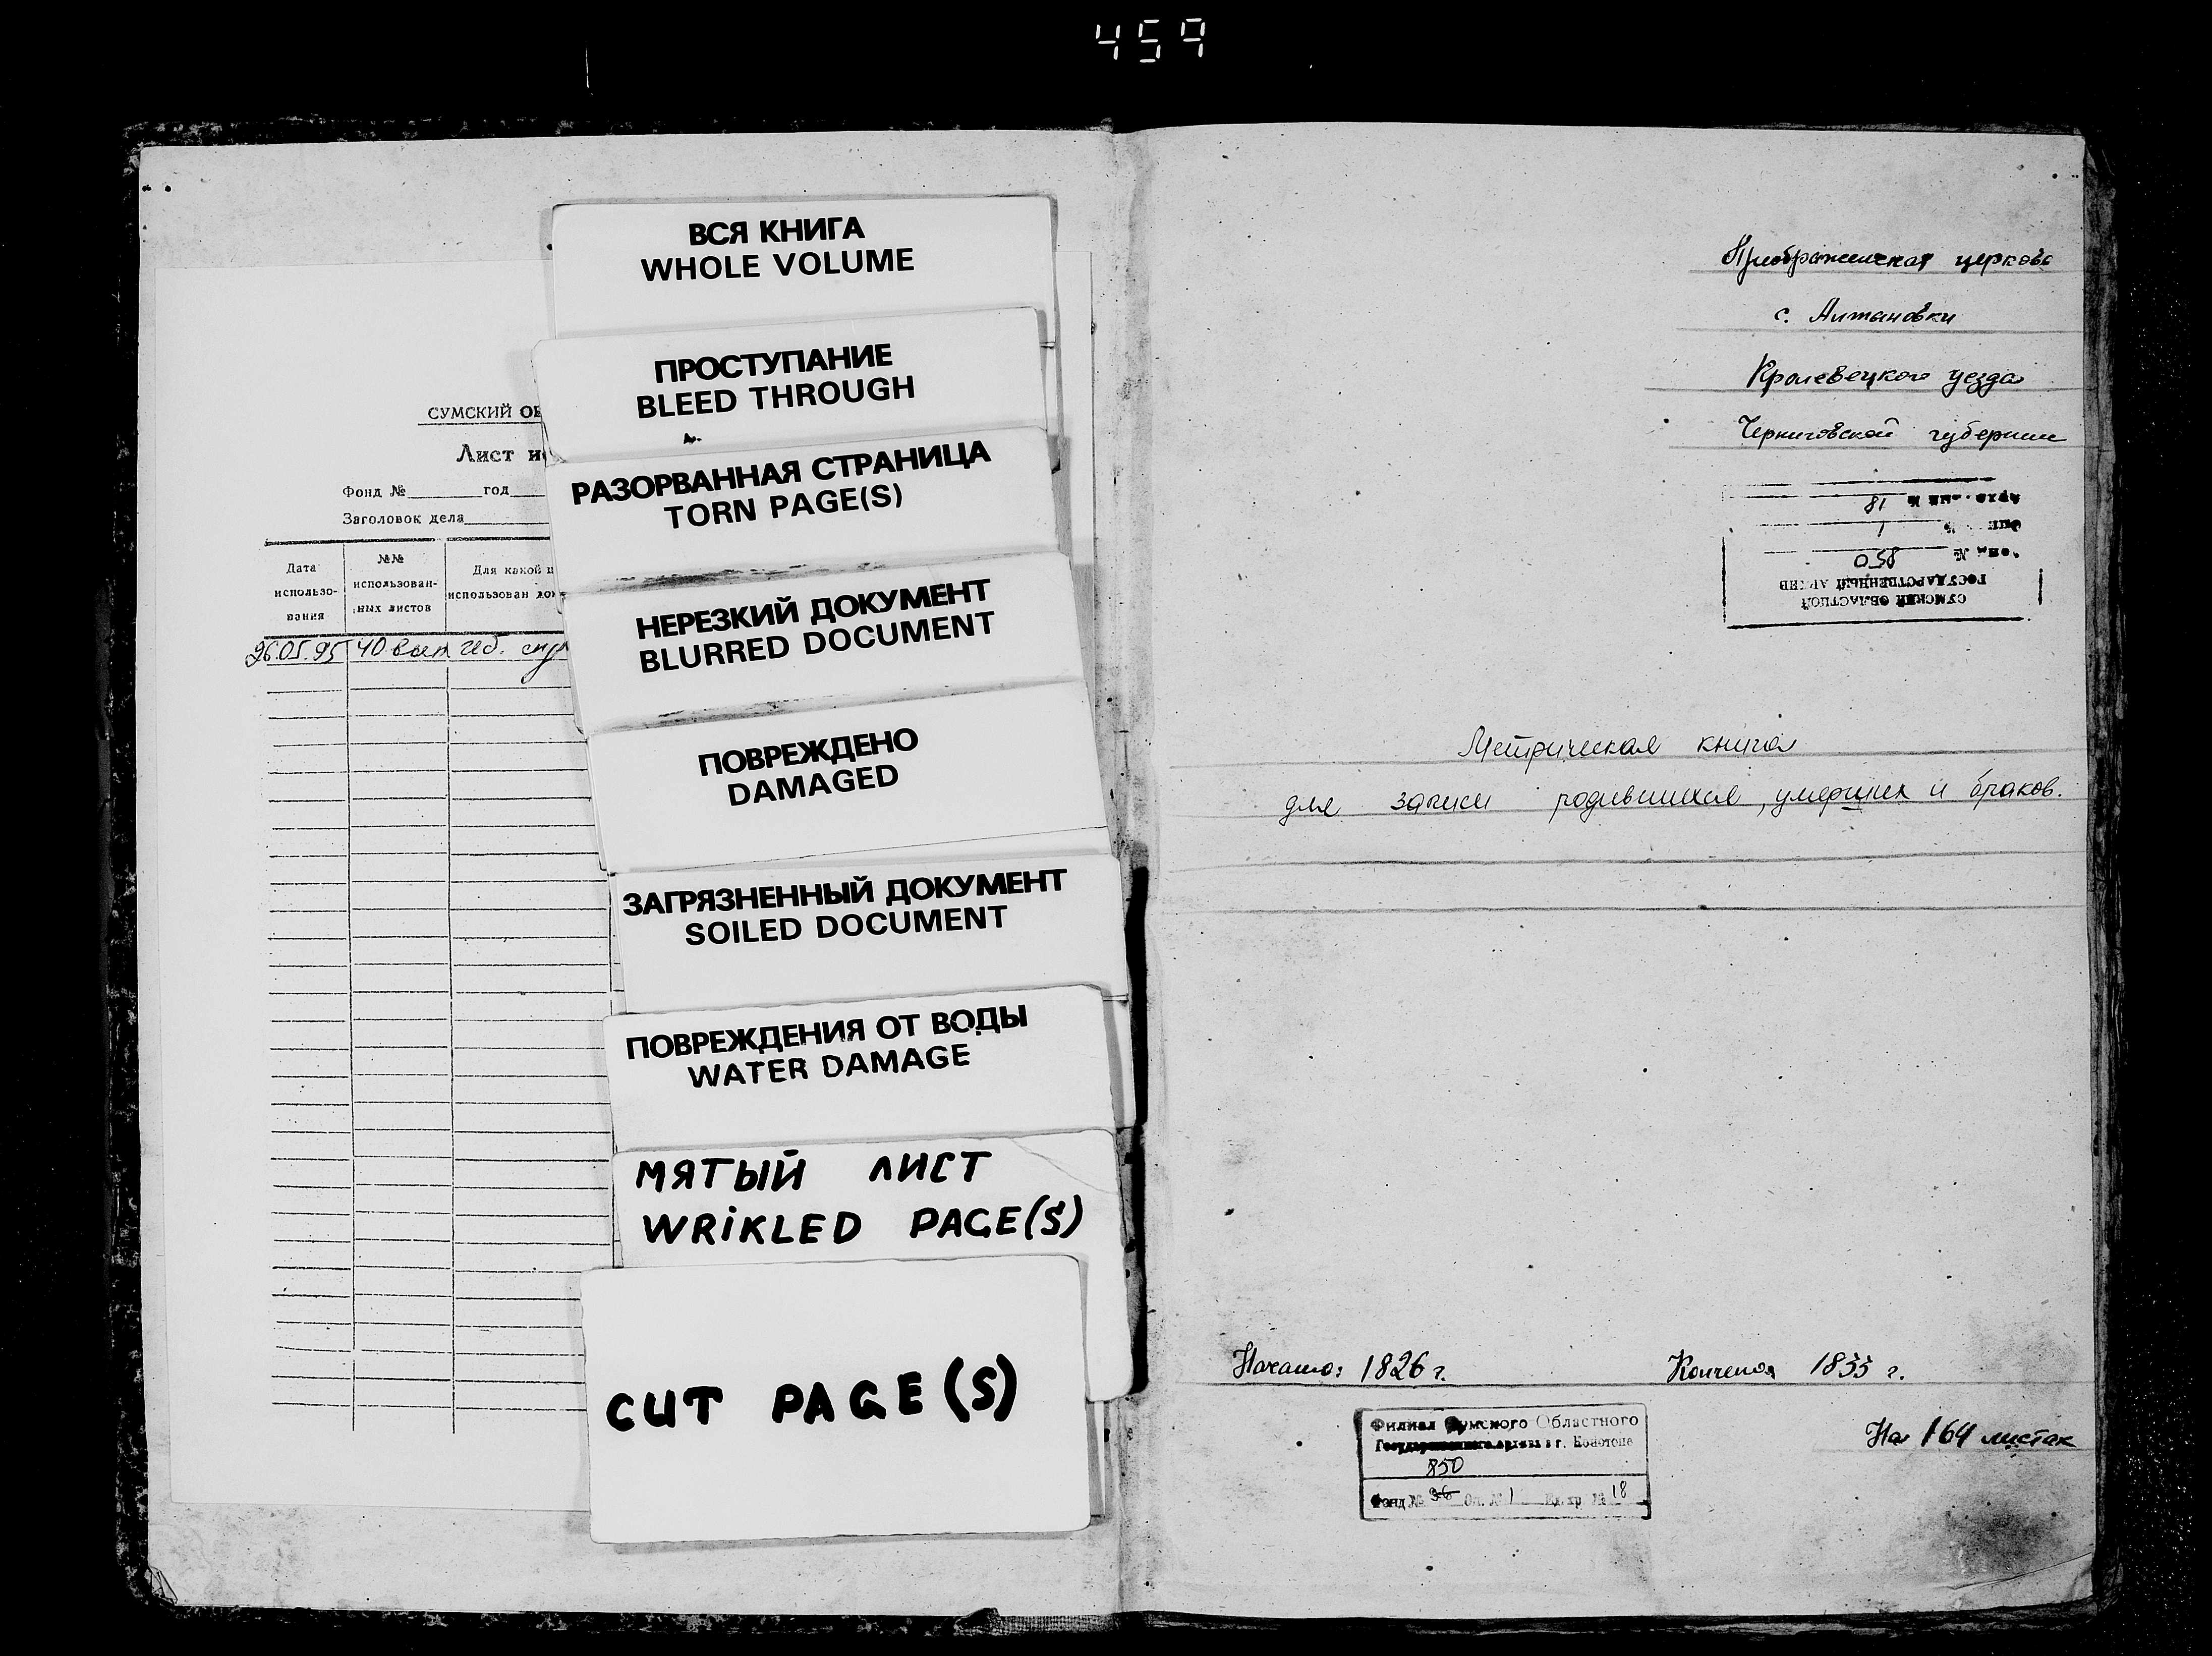 459
СУМСКИЙ ОБ
Лист и
Фонд № год
Заголовок дела
Дата использо- вания
№№ использован- ных листов
Для какой использован
26.01.95 40
ВСЯ КНИГА
WHOLE VOLUME
ПРОСТУПАНИЕ
BLEED THROUGH
РАЗОРВАННАЯ СТРАНИЦА
TORN PAGE(S)
НЕРЕЗКИЙ ДОКУМЕНТ
BLURRED DOCUMENT
ПОВРЕЖДЕНО
DAMAGED
ЗАГРЯЗНЕННЫЙ ДОКУМЕНТ
SOILED DOCUMENT
ПОВРЕЖДЕНИЯ ОТ ВОДЫ
WATER DAMAGE
МЯТЫЙ ЛИСТ
WRIKLED PAGE(S)
CUT PAGE(S)
Преображенская церковь
с. Алтыновки
Кролевецкого уезда
Черниговской губернии
СУМСКИЙ ОБЛАСТНОЙ
ГОСУДАРСТВЕННЫЙ АРХИВ
Фонд № 850
Опись № 1
№ 18
Метрическая книга
для записи родившихся, умерших и браков.
Начато: 1826 г. Кончено: 1833 г.
На 164 листах
Филиал Сумского Областного
Государственного архива в г. Конотопе
850
Фонд № 36 Оп. № 1 Ед. хр. № 18